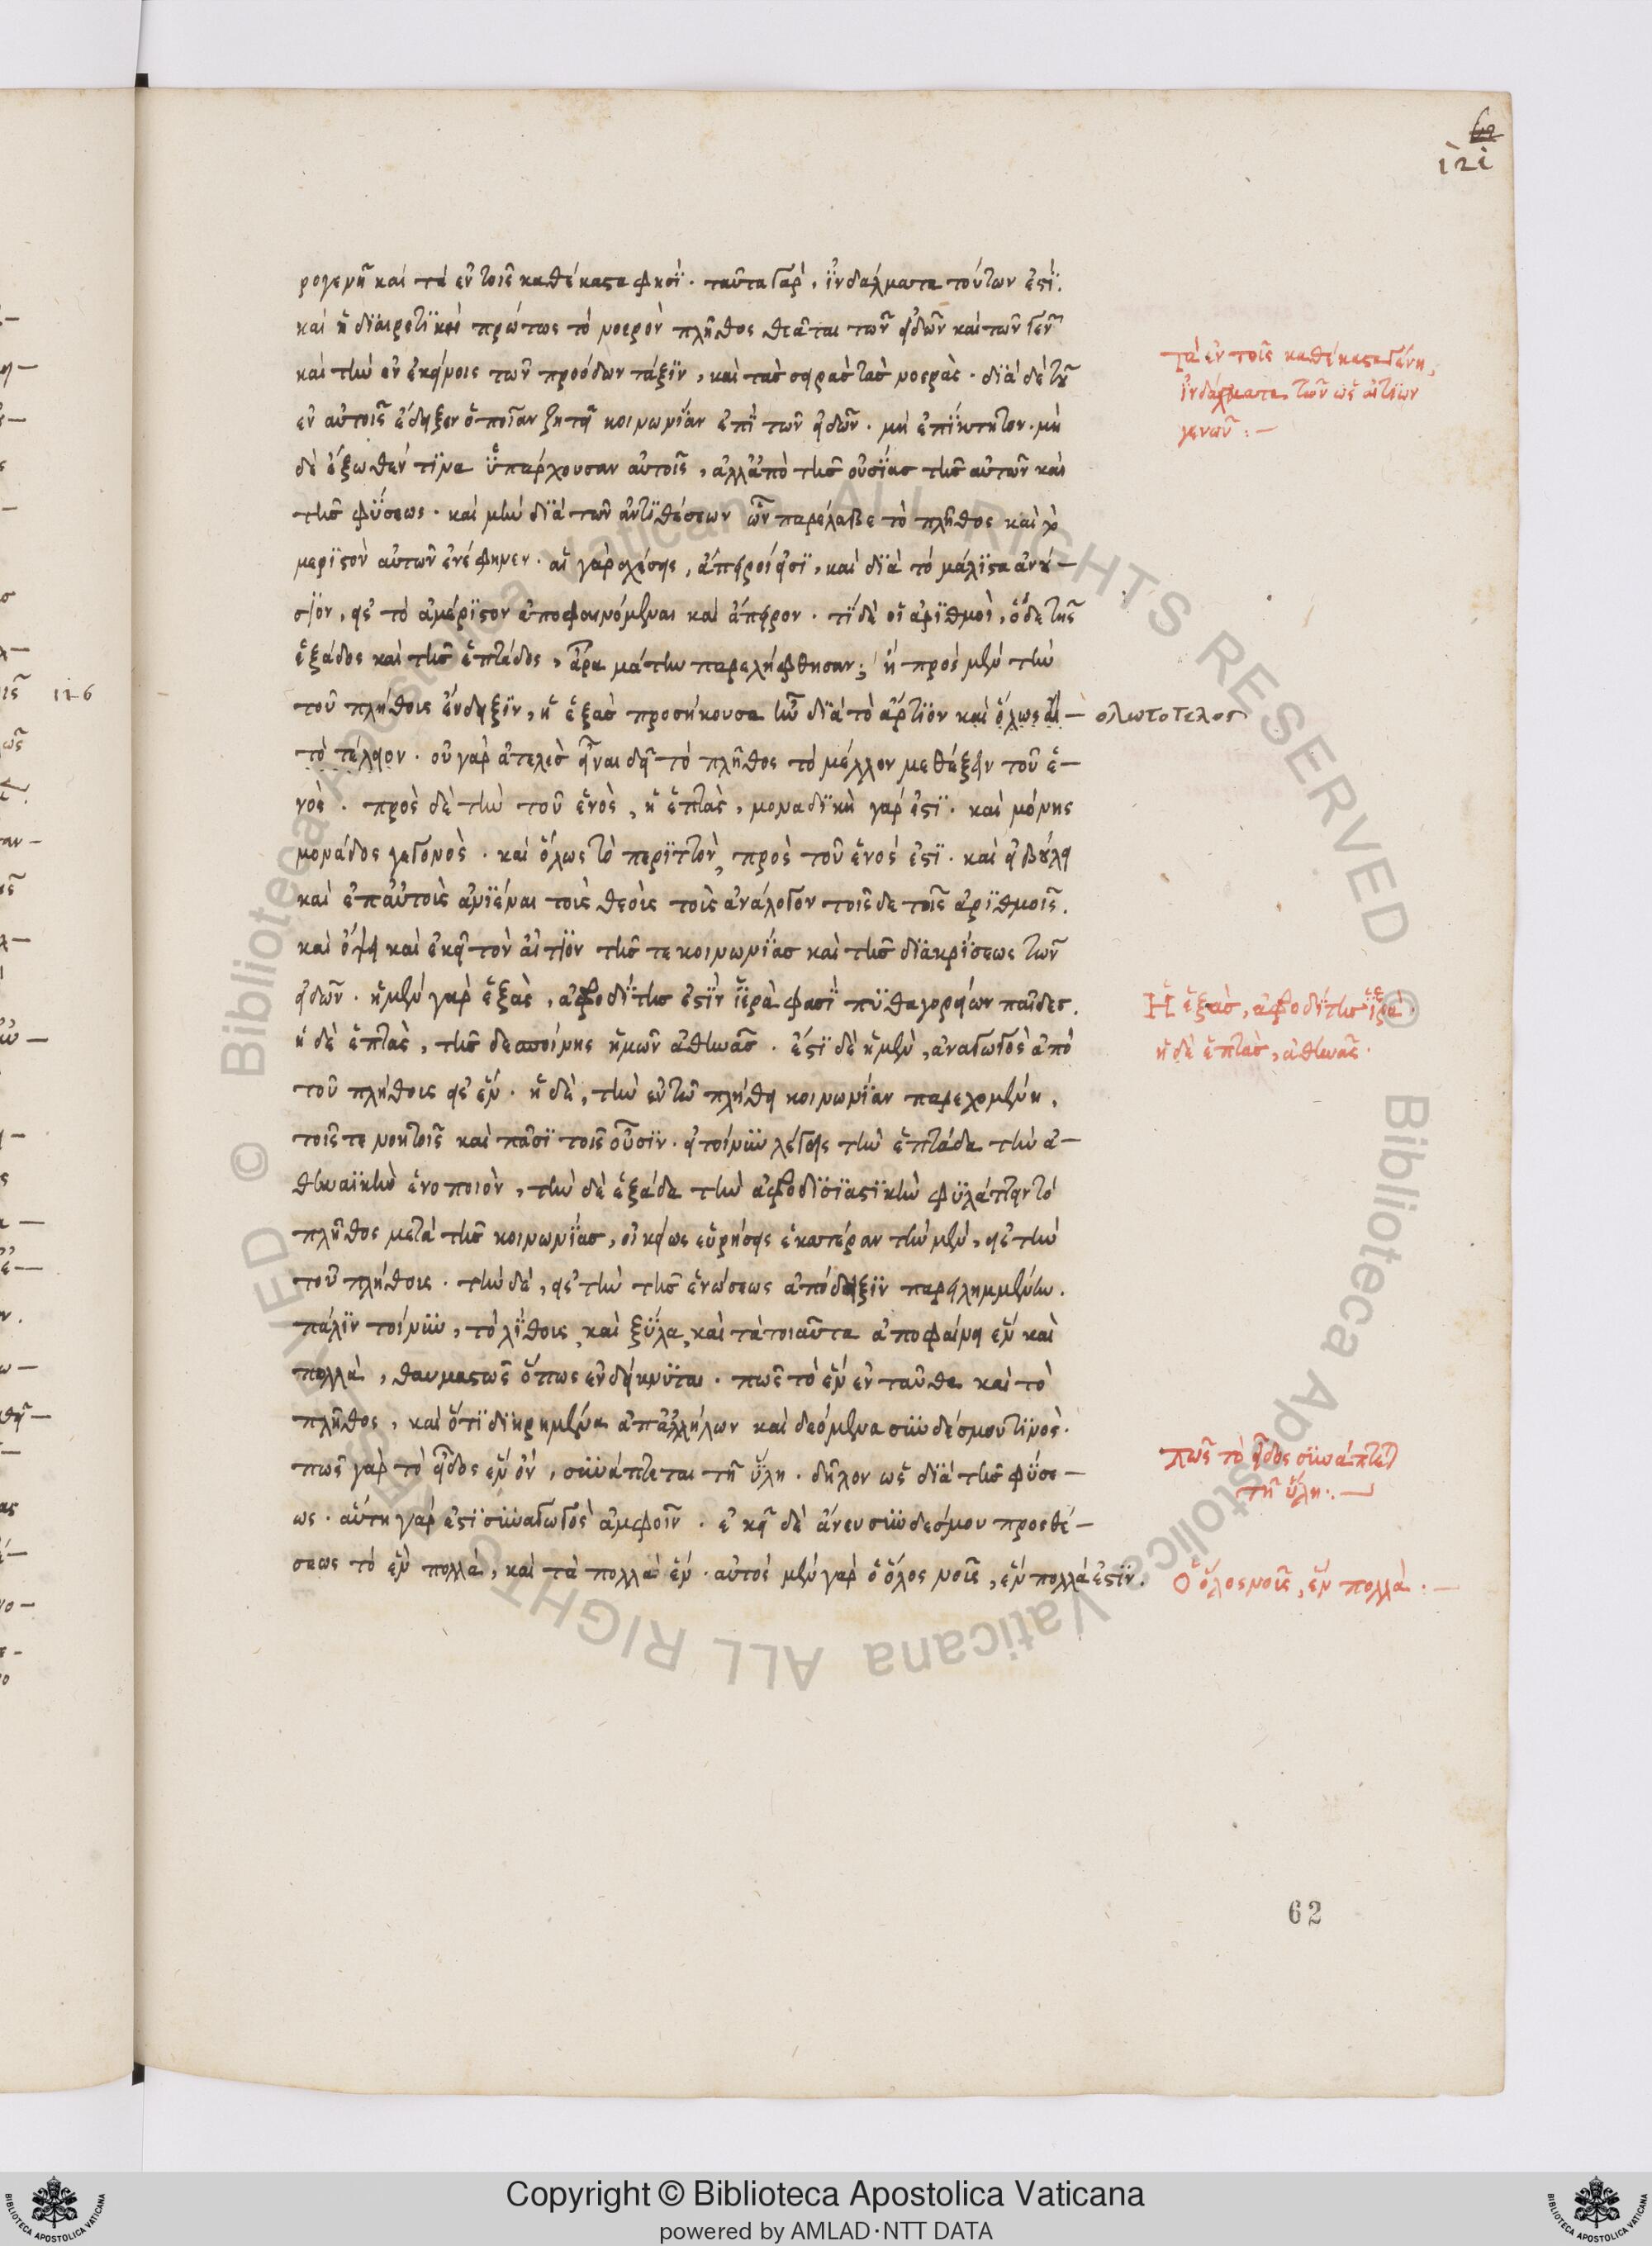 62
121
ρογενῆ καὶ τὰ ἐν τοῖς καθέκαστα φησὶ· ταῦτα γὰρ, ἰνδάλματα τούτων ἐστί.
καὶ ἡ διαιρετικὴ πρώτως τὸ νοερὸν πλῆθος θεᾶται τῶν εἰδῶν καὶ τῶν γενῶν
καὶ τὴν ἐν ἐκείνοις τῶν προόδων τάξιν, καὶ τὰς σειρὰς τὰς νοεράς· διὰ δὲ τοῦ
ἐν αὐτοῖς ἔδειξεν ὁποίαν ζητεῖ κοινωνίαν ἐπὶ τῶν εἰδῶν· μὴ ἐπίκτητον· μὴ
δὲ ἔξωθέν τινα ὑπάρχουσαν αὐτοῖς, ἀλλ' ἀπὸ τῆς οὐσίας τῆς αὐτῶν καὶ
τῆς φύσεως· καὶ μὴν διὰ τῶν ἀντιθέσεων ὧν παρέλαβε τὸ πλῆθος καὶ τὸ
μεριστὸν αὐτῶν ἐνέφηνεν· αἱ γὰρ σχέσεις, ἄπειροί εἰσι, καὶ διὰ τὸ μάλιστα ἀνού-
σιον, εἰς τὸ ἀμέριστον ἀποφαινόμεναι καὶ ἄπειρον· τί δὲ οἱ ἀριθμοὶ, ὅδε τῆς
ἑξάδος καὶ τῆς ἑπτάδος, ἆρα μάτην παρελήφθησαν; ἢ πρὸς μὲν τὴν
τοῦ πλήθους ἔνδειξιν, ἡ ἑξὰς προσήκουσα ἦν διὰ τὸ ἄρτιον καὶ ὅλως αὐ-
ολωτοτελοσ
τὸ τέλειον· οὐ γὰρ ἀτελὲς εἶναι δεῖ τὸ πλῆθος τὸ μέλλον μεθέξειν τοῦ ἑ-
νός· πρὸς δὲ τὴν τοῦ ἑνὸς, ἡ ἑπτὰς, μοναδικὴ γάρ ἐστι· καὶ μόνης
μονάδος γέγονος· καὶ ὅλως τὸ περιττὸν, πρὸς τοῦ ἑνός ἐστι· καὶ εἰ βούλει
καὶ ἐπ' αὐτοὺς ἀνιέναι τοὺς θεοὺς τοὺς ἀνάλογον τοῖσδε τοῖς ἀριθμοῖς.
καὶ ὄψει καὶ ἐκεῖ τὸν αἴτιον τῆς τε κοινωνίας καὶ τῆς διακρίσεως τῶν
εἰδῶν· ἡ μὲν γὰρ ἑξὰς, ἀφροδίτης ἐστὶν ἱερὰ φασὶ πυθαγορείων παῖδες.
ἡ δὲ ἑπτὰς, τῆς δεσποίνης ἡμῶν ἀθηνᾶς· ἔστι δὲ ἡ μὲν, ἀναγωγὸς ἀπὸ
τοῦ πλήθους εἰς ἕν· ἡ δὲ, τὴν ἐν τῶ πλήθει κοινωνίαν παρεχομένη,
τοῖς τε νοητοῖς καὶ πᾶσι τοῖς οὖσιν· εἰ τοίνυν λέγεις τὴν ἑπτάδα τὴν ἀ-
θηναϊκὴν ἑνοποιὸν, τὴν δὲ ἑξάδα τὴν ἀφροδισιαστικὴν φυλάττειν τὸ
πλῆθος μετὰ τῆς κοινωνίας, οἰκείως εὑρήσεις ἑκατέραν τὴν μὲν, εἰς τὴν
τοῦ πλήθους· τὴν δὲ, εἰς τὴν τῆς ἑνώσεως ἀπόδειξιν παρειλημμένην.
πάλιν τοίνυν, τὸ λίθους καὶ ξύλα καὶ τὰ τοιαῦτα ἀποφαίνει ἓν καὶ
πολλὰ, θαυμαστῶς ὅπως ἐνδείκνυται· πῶς τὸ ἓν ἐνταῦθα καὶ τὸ
πλῆθος, καὶ ὅτι διηρημένα ἀπ' ἀλλήλων καὶ δεόμενα συνδέσμου τινός·
πῶς γὰρ τὸ εἶδος ἓν ὂν, συνάπτεται τῆ ὕλη· δῆλον ὡς διὰ τῆς φύσε-
ως· αὕτη γάρ ἐστι συναγωγὸς ἀμφοῖν· ἐκεῖ δὲ ἄνευ συνδέσμου προσθέ-
σεως τὸ ἓν πολλὰ, καὶ τὰ πολλὰ ἕν· αὐτὸς μὲν γὰρ ὁ ὅλος νοῦς, ἓν πολλά ἐστιν.
τὰ ἐν τοῖς καθέκαστα γένη,
ἰνδάλματα τῶν ὡς αἰτίων
γενῶν :—
Ἡ ἑξὰς, ἀφροδίτης ἱερά·
ἡ δὲ ἑπτὰς, ἀθηνᾶς·
πῶς τὸ εἶδος συνάπτεται
τῆ ὕλη :—
Ὁ ὅλος νοῦς, ἓν πολλὰ :—
126
62
Copyright © Biblioteca Apostolica Vaticana
powered by AMLAD·NTT DATA